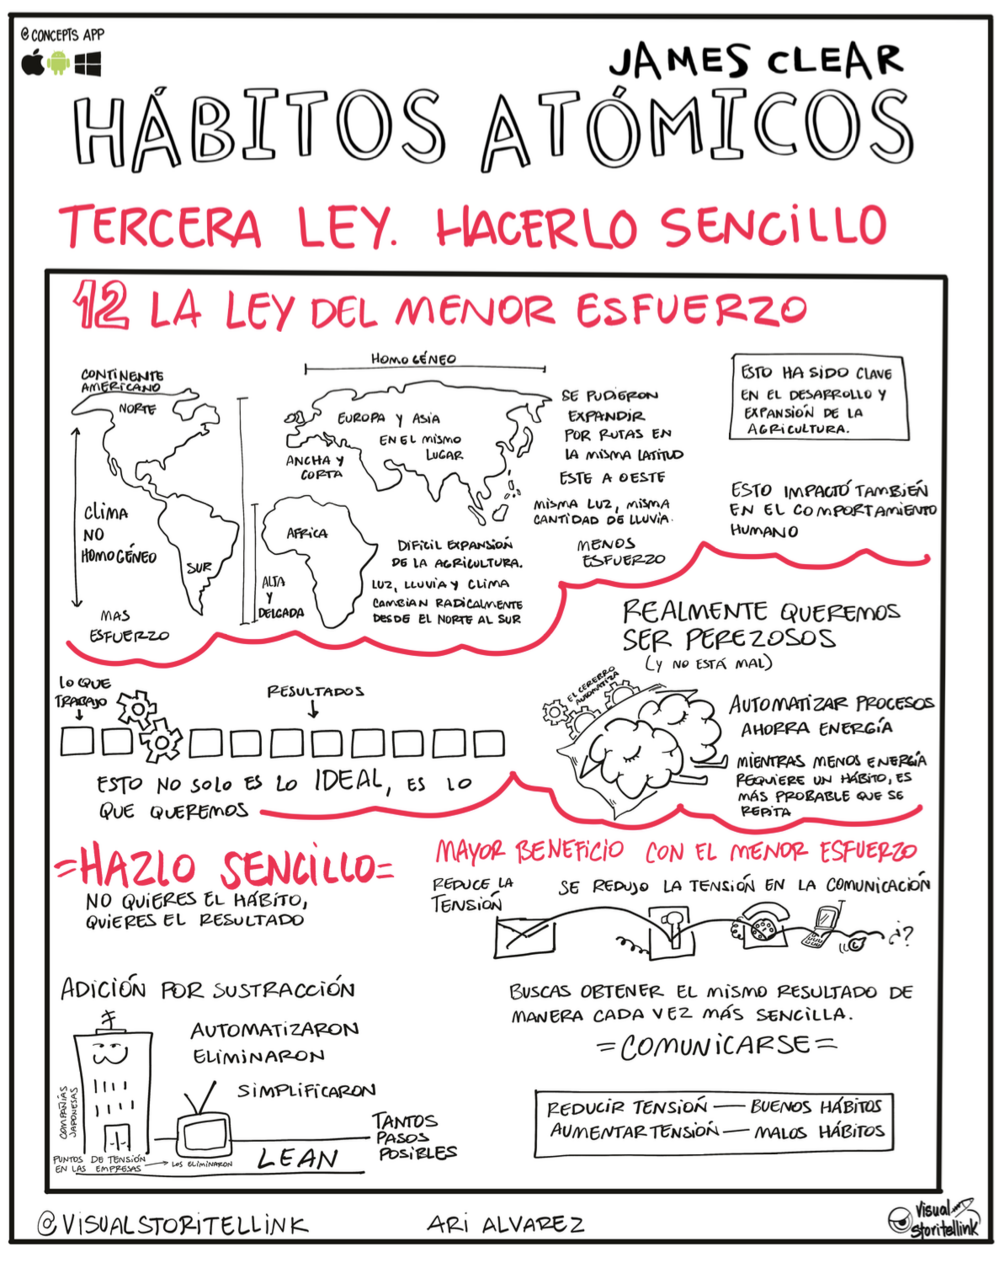 @CONCEPTS APP
JAMES CLEAR
HÁBITOS ATÓMICOS
TERCERA LEY. HACERLO SENCILLO
12 LA LEY DEL MENOR ESFUERZO
CONTINENTE
AMERICANO
NORTE
CLIMA
NO
HOMOGÉNEO
SUR
MAS
ESFUERZO
HOMOGÉNEO
EUROPA Y ASIA
EN EL MISMO
LUGAR
ANCHA Y
CORTA
AFRICA
ALTA
Y
DELGADA
DIFICIL EXPANSIÓN
DE LA AGRICULTURA.
LUZ, LLUVIA Y CLIMA
CAMBIAN RADICALMENTE
DESDE EL NORTE AL SUR
SE PUDIERON
EXPANDIR
POR RUTAS EN
LA MISMA LATITUD
ESTE A OESTE
MISMA LUZ, MISMA
CANTIDAD DE LLUVIA.
MENOS
ESFUERZO
ESTO HA SIDO CLAVE
EN EL DESARROLLO Y
EXPANSIÓN DE LA
AGRICULTURA.
ESTO IMPACTÓ TAMBIÉN
EN EL COMPORTAMIENTO
HUMANO
LO QUE
TRABAJO
RESULTADOS
ESTO NO SOLO ES LO IDEAL, ES LO
QUE QUEREMOS
REALMENTE QUEREMOS
SER PEREZOSOS
(Y NO ESTÁ MAL)
EL CEREBRO
AUTOMATIZA
AUTOMATIZAR PROCESOS
AHORRA ENERGÍA
MIENTRAS MENOS ENERGÍA
REQUIERE UN HÁBITO, ES
MÁS PROBABLE QUE SE
REPITA
=HAZLO SENCILLO=
NO QUIERES EL HÁBITO,
QUIERES EL RESULTADO
MAYOR BENEFICIO CON EL MENOR ESFUERZO
REDUCE LA
TENSIÓN
SE REDUJO LA TENSIÓN EN LA COMUNICACIÓN
¿?
BUSCAS OBTENER EL MISMO RESULTADO DE
MANERA CADA VEZ MÁS SENCILLA.
=COMUNICARSE=
ADICIÓN POR SUSTRACCIÓN
AUTOMATIZARON
ELIMINARON
SIMPLIFICARON
COMPAÑÍAS
JAPONESAS
PUNTOS DE TENSIÓN
EN LAS EMPRESAS
LOS ELIMINARON
LEAN
TANTOS
PASOS
POSIBLES
REDUCIR TENSIÓN — BUENOS HÁBITOS
AUMENTAR TENSIÓN — MALOS HÁBITOS
@VISUALSTORITELLINK
ARI ALVAREZ
Visual
Storitellink